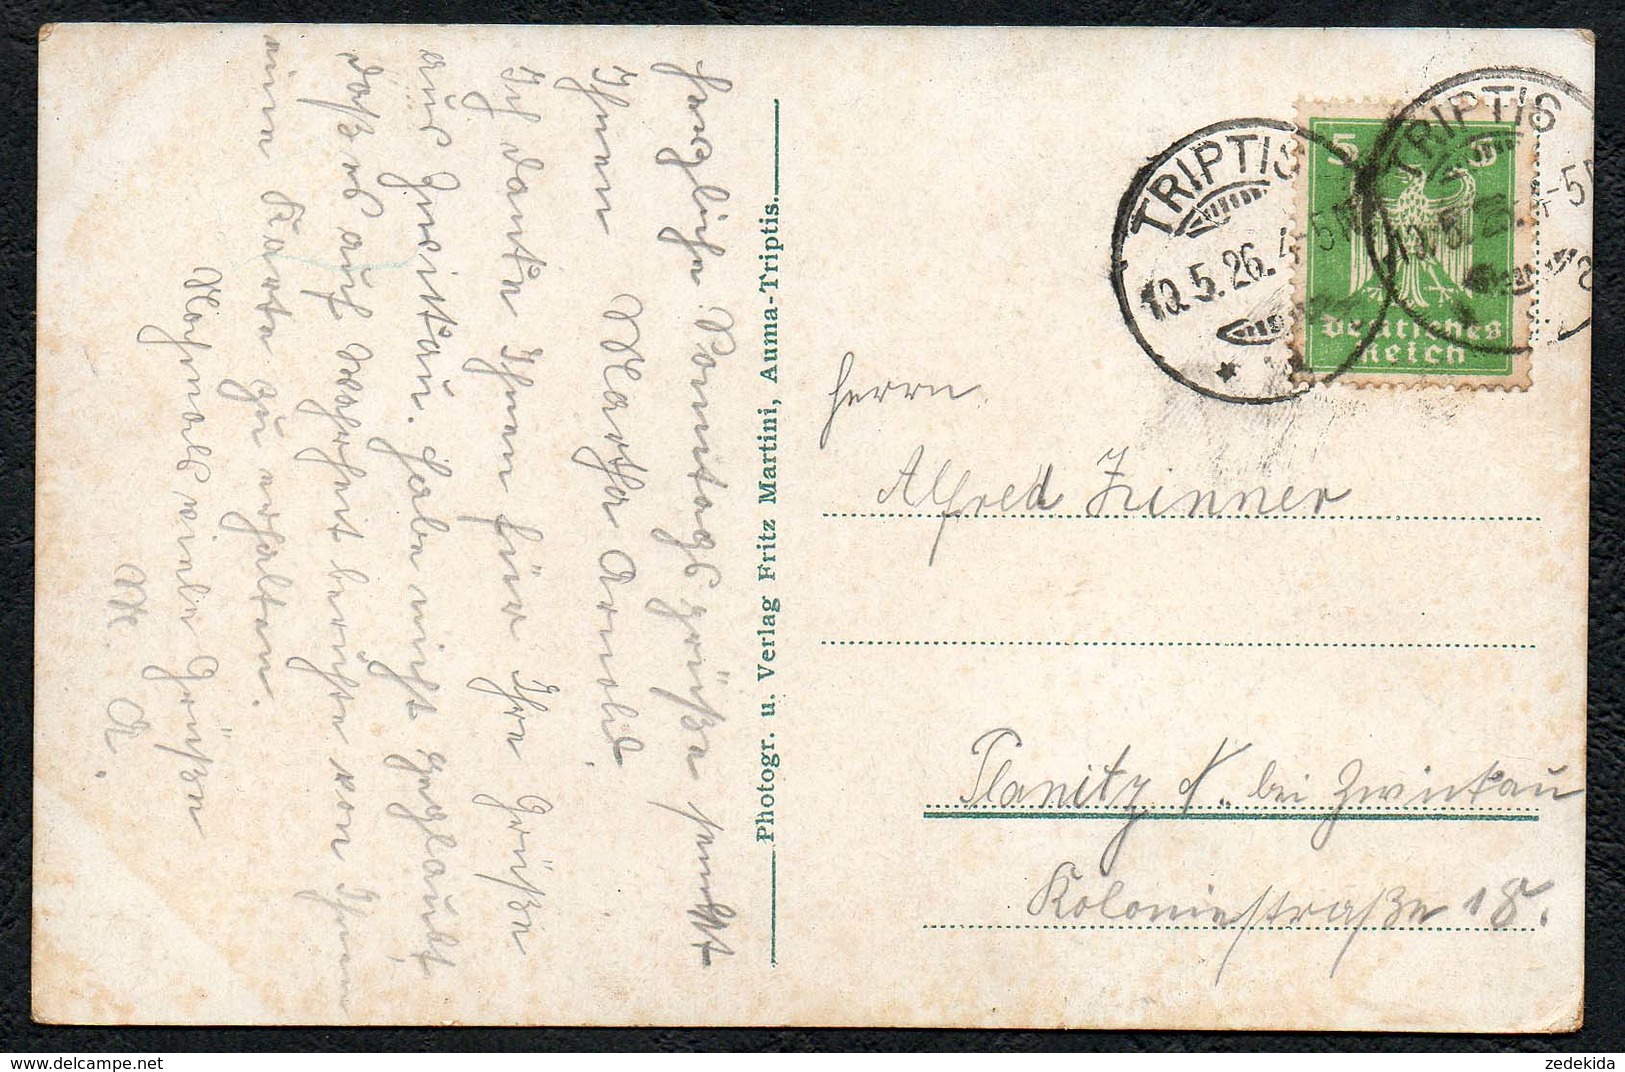 Herzliche Sonntagsgrüße sendet
Ihnen Martha Arnold.
Ich danke Ihnen für Ihre Grüße
aus Zwickau. Habe nicht geglaubt,
daß es auf Wahrheit beruhte von Ihnen
eine Karte zu erhalten.
Nochmals viele Grüßen
M. A.
Photogr. u. Verlag Fritz Martini, Auma-Triptis.
TRIPTIS
10.5.26.4-5N
TRIPTIS
10.5.26.4-5N
5 5
Deutsches
Reich
Herrn
Alfred Zinner
Planitz b. bei Zwickau
Koloniestraße 18.
zedekida